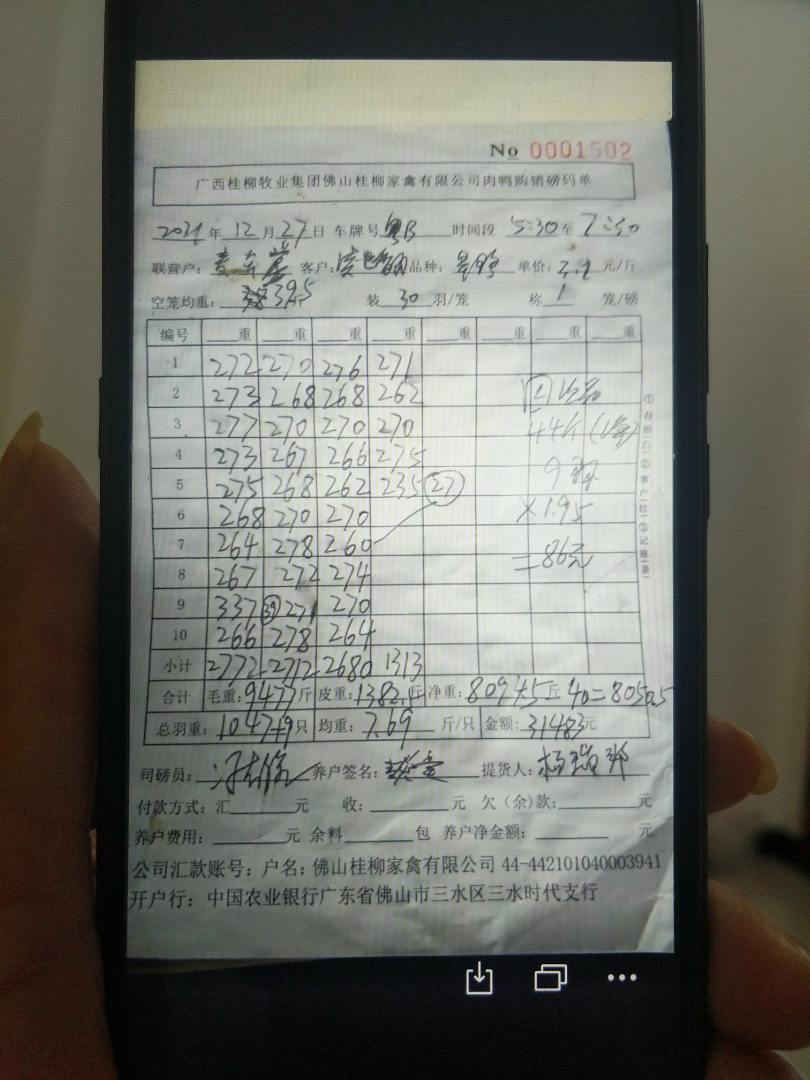 No 0001502
广西桂柳牧业集团佛山桂柳家禽有限公司肉鸭购销磅码单
2021年12月27日 车牌号 粤B 时间段 5:30至7:50
联营户: 客户: 品种: 单价: 元/斤
空笼均重: 39.5 装30羽/笼 称1笼/磅
编号 重 重 重 重 重 重 重 重
1 272 270 276 271
2 273 268 268 262
3 277 270 270 270
4 273 267 266 275 44斤
5 275 268 262 235 27 9
6 268 270 270 ×1.95
7 264 278 260
8 267 272 274 =86元
9 337 271 270
10 266 278 264
小计 2772 2712 2680 1313
合计 毛重:9477斤 皮重:1382.5斤 净重:8094.5斤 40=8050.5
总羽重:1047+9只 均重:7.69斤/只 金额:31483元
司磅员: 养户签名: 提货人:
付款方式:汇 元 收: 元 欠(余)款: 元
养户费用: 元 余料 包 养户净金额: 元
公司汇款账号:户名:佛山桂柳家禽有限公司 44-442101040003941
开户行:中国农业银行广东省佛山市三水区三水时代支行
①存根(白)②客户(红)③记账(黄)